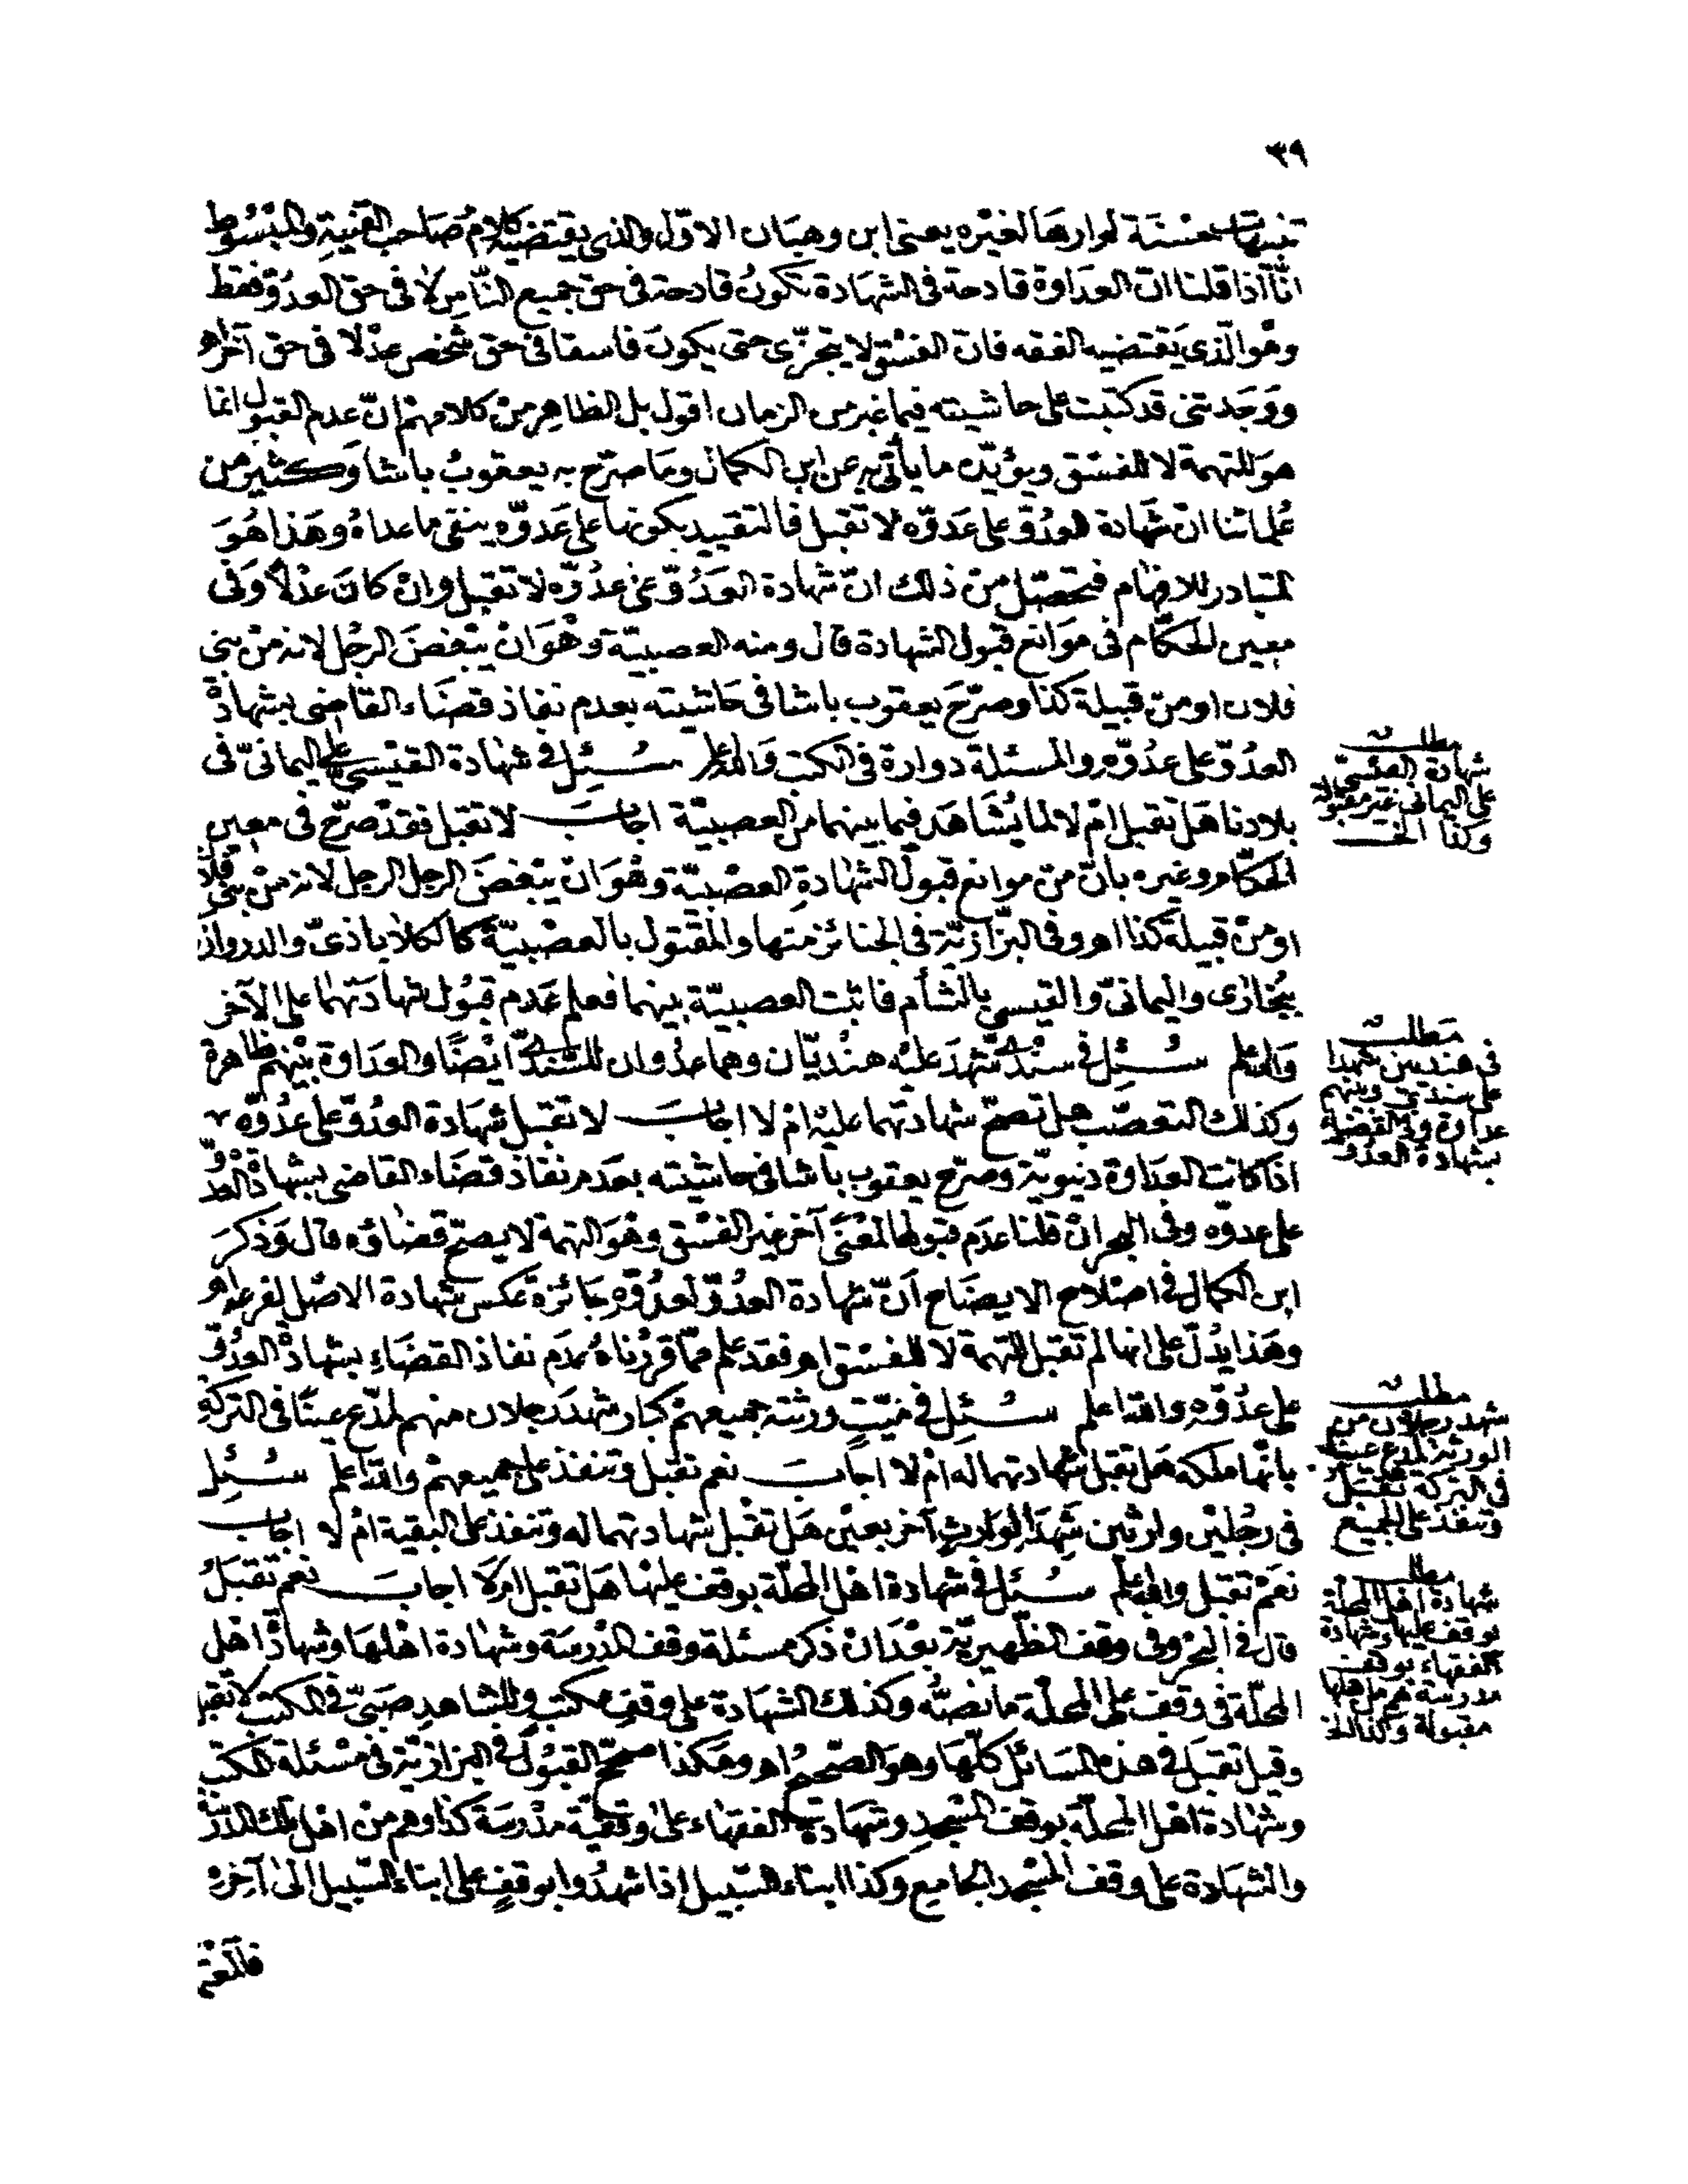 ٣٩
تنبيهات حسنة لم ارها لغيره يعني ابن وهبان الاول الذي يقتضيه كلام صاحب القنية والمبسوط
انّا اذا قلنا انّ العداوة قادحة في الشهادة تكون قادحة في حق جميع النّاس لا في حق العدوّ فقط
وهو الّذي يقتضيه الفقه فانّ الفسق لا يتجزّى حتى يكون فاسقا في حق شخص عدلا في حق آخر اه
ووجدتني قد كتبت على حاشيته فيما غبر من الزمان اقول بل الظاهر من كلامهم انّ عدم القبول انما
هو للتهمة لا للفسق ويؤيّده ما يأتي به عن ابن الكمال وما صرّح به يعقوب باشا وكثير من
علمائنا انّ شهادة العدوّ على عدوّه لا تقبل فالتقييد بكونها على عدوّه ينفي ما عداه وهذا هو
المتبادر للافهام فتحصّل من ذلك انّ شهادة العدوّ على عدوّه لا تقبل وان كان عدلا وفي
معين الحكّام في موانع قبول الشهادة قال ومنه العصبيّة وهو ان يبغض الرجل لانه من بني
فلان او من قبيلة كذا وصرّح يعقوب باشا في حاشيته بعدم نفاذ قضاء القاضي بشهادة
العدوّ على عدوّه والمسئلة دوارة في الكتب والله اعلم سئل في شهادة القيسي على اليمانيّ في
بلادنا هل تقبل ام لا لما يشاهد فيما بينهما من العصبيّة اجاب لا تقبل فقد صرّح في معين
الحكّام وغيره بانّ من موانع قبول الشهادة العصبيّة وهو ان يبغض الرجل الرجل لانه من بني فلان
او من قبيلة كذا اه وفي البزّازيّة في الجنائز منها والمقتول بالعصبيّة كالكلاباذيّ والدروازي
ببخارى واليمانيّ والقيسي بالشأم فاثبت العصبيّة بينهما فعلم عدم قبول شهادتهما على الآخر
والله اعلم سئل في سنديّ شهد عليه هنديّان وهما عدوان للسنديّ ايضا والعداوة بينهم ظاهرة
وكذلك التعصّب هل تصحّ شهادتهما عليه ام لا اجاب لا تقبل شهادة العدوّ على عدوّه
اذا كانت العداوة دنيويّة وصرّح يعقوب باشا في حاشيته بعدم نفاذ قضاء القاضي بشهادة العدوّ
على عدوّه وفي البحر ان قلنا عدم قبولها لمعنى آخر غير الفسق وهو التهمة لا يصحّ قضاؤه قال وذكر
ابن الكمال في اصلاح الايضاح انّ شهادة العدوّ لعدوّه جائزة عكس شهادة الاصل لفرعه اه
وهذا يدلّ على انها لم تقبل للتهمة لا للفسق اه فقد علم ممّا قرّرناه عدم نفاذ القضاء بشهادة العدوّ
على عدوّه والله اعلم سئل في ميّت ورثته جميعهم كبار شهد رجلان منهم لمدّع عينا في التركة
بانّها ملكه هل تقبل شهادتهما له ام لا اجاب نعم تقبل وتنفذ على جميعهم والله اعلم سئل
في رجلين وارثين شهدا لوارث آخر بعين هل تقبل شهادتهما له وتنفذ على البقية ام لا اجاب
نعم تقبل والله اعلم سئل في شهادة اهل المحلّة بوقف عليها هل تقبل ام لا اجاب نعم تقبل
قال في البحر وفي وقف الظهيريّة بعد ان ذكر مسئلة وقف المدرسة وشهادة اهلها وشهادة اهل
المحلّة في وقف على المحلّة ما نصّه وكذلك الشهادة على وقف مكتب وللشاهد صبيّ في المكتب لا تقبل
وقيل تقبل في هذه المسائل كلّها وهو الصّحيح اه وهكذا صحّح القبول في البزازيّة في مسئلة المكتب
وشهادة اهل المحلّة بوقف المسجد وشهادة الفقهاء على وقفيّة مدرسة كذا وهم من اهل تلك المدرسة
والشهادة على وقف المسجد الجامع وكذا ابناء السّبيل اذا شهدوا بوقف على ابناء السّبيل الى آخره
فالمعتم
مطلب
شهادة القيسي
على اليماني غير مقبولة
وكذا الخ
مطلب
في هنديين شهدا
على سندي وبينهم
عداوة وفي القضاء
بشهادة العدو
مطلب
شهد رجلان من
الورثة لمدع عينا
في التركة تقبل
وتنفذ على الجميع
مطلب
شهادة اهل المحلة
بوقف عليها وشهادة
الفقهاء بوقف
مدرسة هم من اهلها
مقبولة وكذا الخ